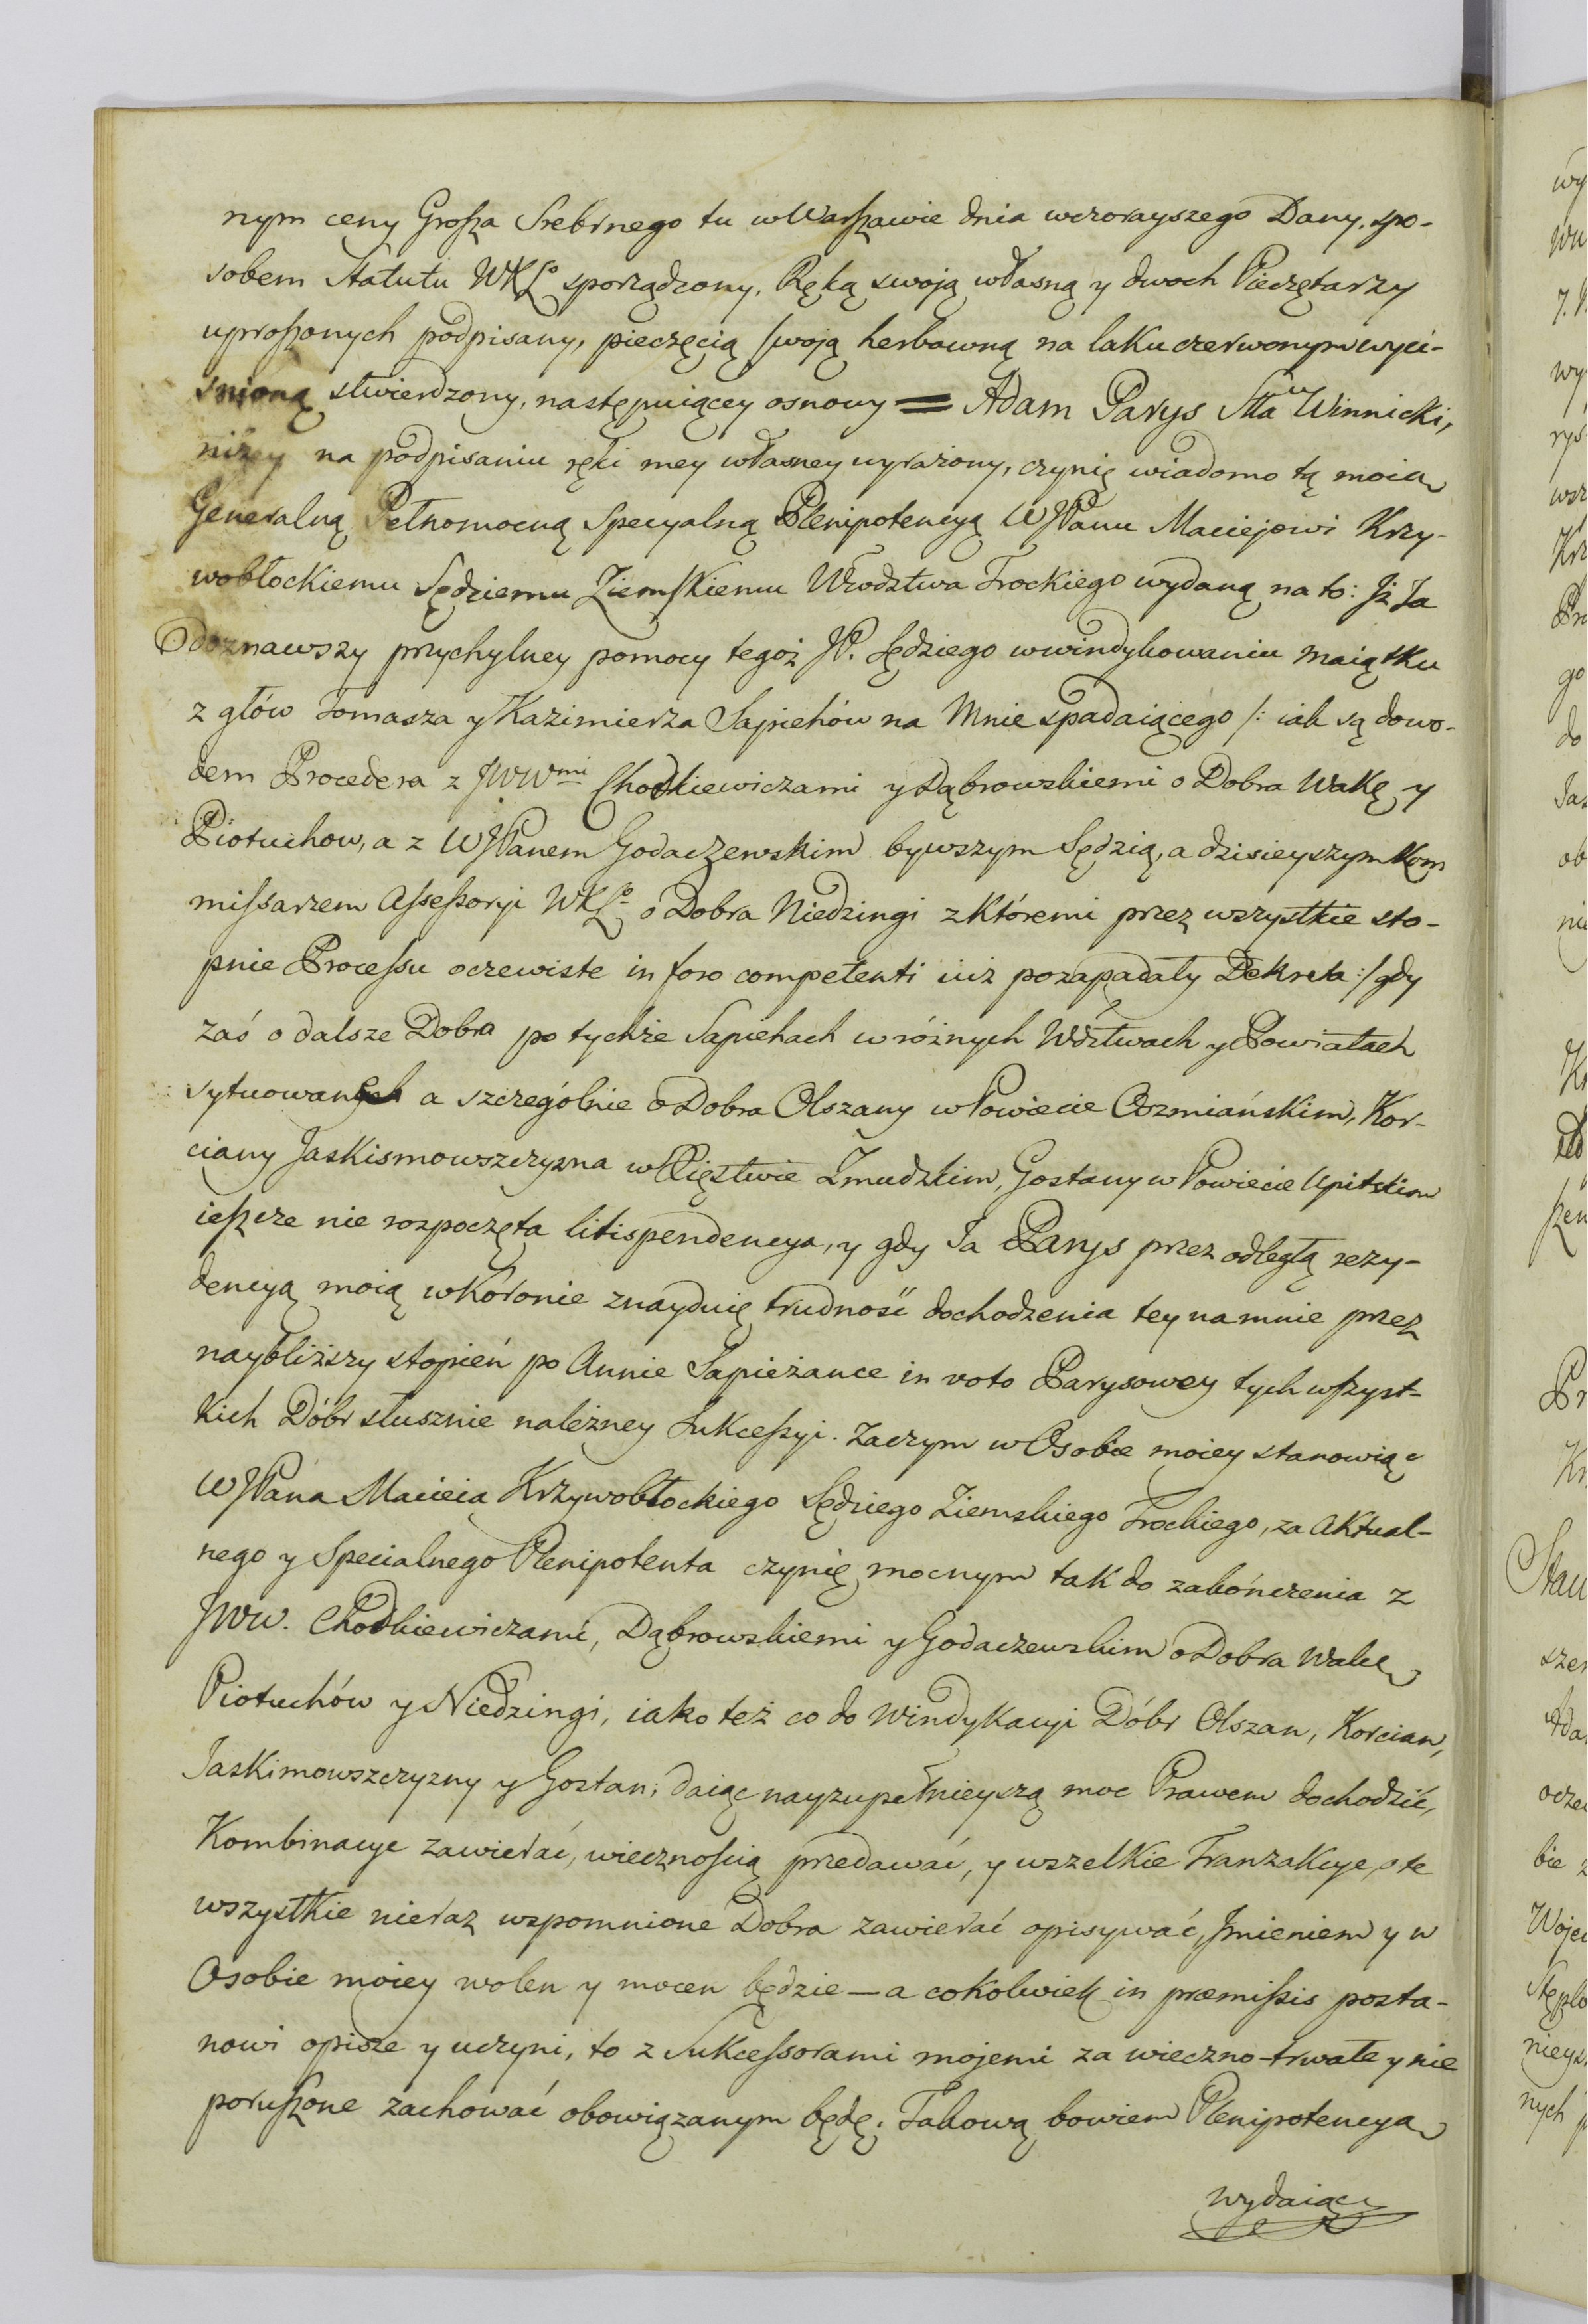 nym ceny Groſza Srebrnego tu w Warſzawie dnia wczorayszego Dany, spo-
sobem Statutu WXLo sporządzony, Ręką swoją własną y dwoch Pieczętarzy
uproſzonych podpisany, pieczęcią ſwoją herbowną na laku czerwonym wyci-
snioną stwierdzony, następuiącey osnowy = Adam Parys Stta Winnicki,
niżey na podpisaniu ręki mey własney wyrażony, czynię wiadomo tą moią
Generalną Pełnomocną Specyalną Plenipotencyą WJPanu Maciejowi Krzy-
wobłockiemu Sędziemu Ziemſkiemu Wwodztwa Trockiego wydaną na to: Jż Ja
doznawszy przychylney pomocy tegoż JP. Sędziego w windykowaniu maiątku
z głów Tomasza y Kazimierza Sapiehów na Mnie spadaiącego /: iak są dowo-
dem Procedera z JWWmi Chodkiewiczami y Dąbrowskiemi o Dobra Wakę y
Piotuchow, a z WJPanem Godaczewskim bywszym Sędzią, a dzisieyszym Kom
miſsarzem Aſseſsoryi WXLo o Dobra Niedzingi z któremi przez wszystkie sto-
pnie Proceſsu oczewiste in foro competenti iuż pozapadały Dekreta :/ gdy
zaś o dalsze Dobra po tychże Sapiehach w różnych Wdztwach y Powiatach
sytuowanych a szczególnie o Dobra Olszany w Powiecie Oszmiańskim, Kor-
ciany Jaskismowszczyzna w Xięstwie Żmudzkim, Gostany w Powiecie Upitskim
ieſzcze nie rozpoczęta litispendencya, y gdy Ja Parys przez odległą rezy-
dencyą moią w Koronie znayduię trudność dochodzenia tey na mnie przez
naybliższy stopień po Annie Sapieżance in voto Parysowey tych wſzyst-
kich Dóbr słusznie należney Sukceſsyi. Zaczym w Osobie moiey stanowiąc
WJPana Macieia Krzywobłockiego Sędziego Ziemskiego Trockiego, za Aktual-
nego y Specialnego Plenipotenta czynię mocnym tak do zakończenia z
JWW. Chodkiewiczami, Dąbrowskiemi y Godaczewskim o Dobra Wakę,
Piotuchów y Niedzingi, iako też co do Windykacyi Dóbr Olszan, Korcian,
Jaskimowszczyzny y Gostan, daiąc nayzupełnieyszą moc Prawem dochodzić,
Kombinacye zawierać, wiecznoſcią przedawać, y wszelkie Tranzakcye, o te
wszystkie nieraz wspomnione Dobra zawierać opisywać, Jmieniem y w
Osobie moiey wolen y mocen będzie — a cokolwiek in præmiſsis posta-
nowi opisze y uczyni, to z Sukceſsorami mojemi za wieczno-trwałe y nie
poruſzone zachować obowiązanym będę. Takową bowiem Plenipotencyą
wydaiąc